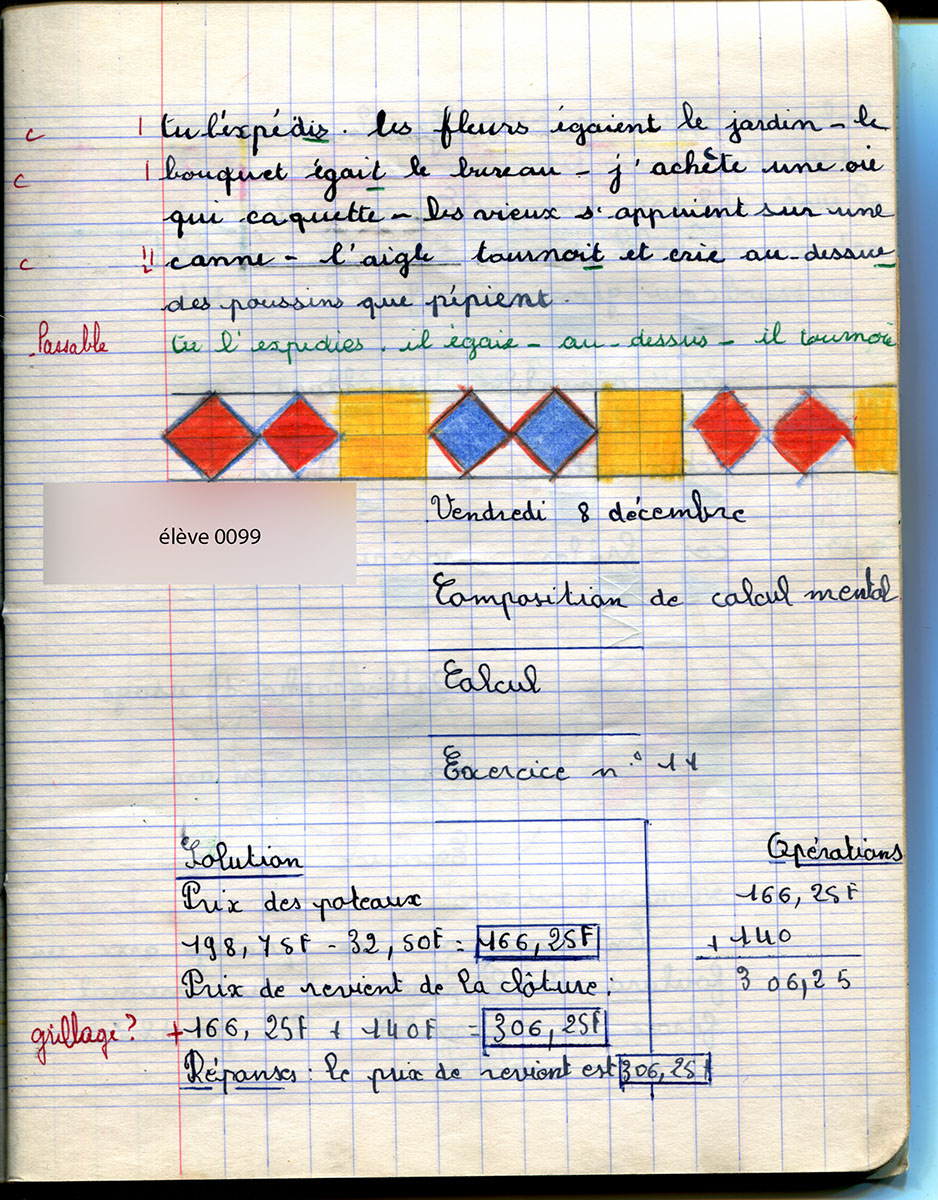 c | tu l'expédis. les fleurs égaient le jardin - le
c | bouquet égait le bureau - j'achète une oie
qui caquette - les vieux s'appuient sur une
c || canne - l'aigle tournoit et crie au-dessue
des poussins que pépient.
Passable tu l'expedies. il égaie - au-dessus - il tournoie
élève 0099
Vendredi 8 décembre
Composition de calcul mental
Calcul
Exercice n° 11
Solution
Opérations
Prix des poteaux
166,25F
198,75F - 32,50F = 166,25F
+ 140
Prix de revient de la clôture :
306,25
grillage? + 166,25F + 140F = 306,25F
Réponses : le prix de revient est 306,25F